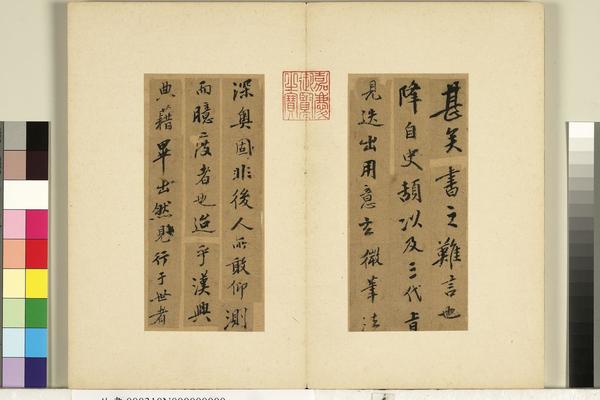 甚矣書之難言也
降自史頡以及三代
見迭出用意玄微筆法
深奧固非後人所敢仰測
而臆度者也迨乎漢興
典籍畢出然見行于世者
嘉慶御覽之寶